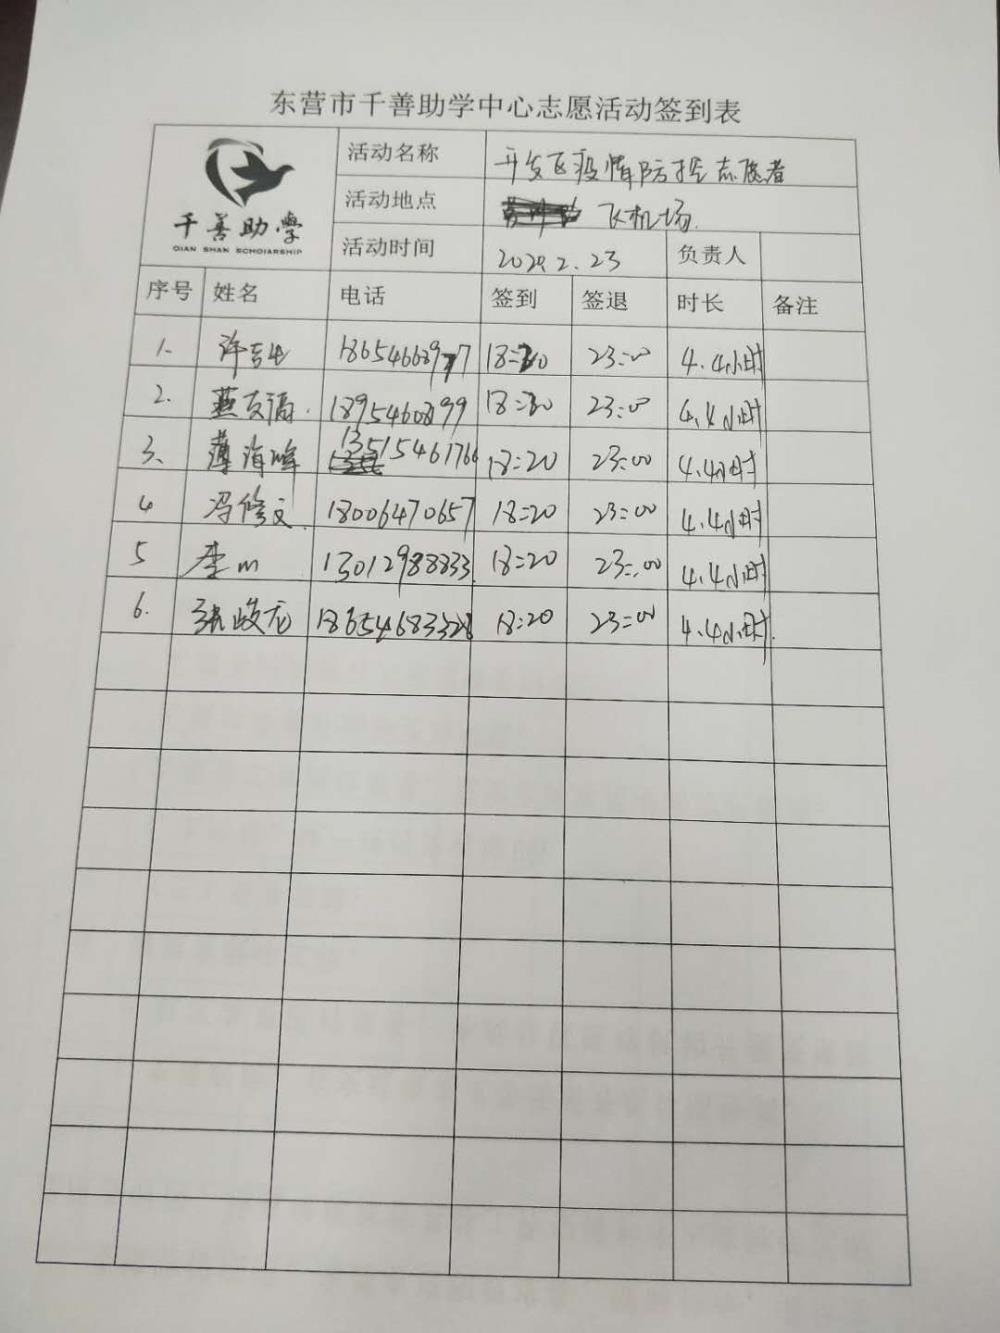 东营市千善助学中心志愿活动签到表
千善助学
QIAN SHAN SCHOIARSHIP
活动名称 开发区疫情防控志愿者
活动地点 飞机场.
活动时间 2020.2.23 负责人
序号 姓名 电话 签到 签退 时长 备注
1. 许 18654668977 18:20 23:00 4.4小时
2. 燕 18954608199 18:20 23:00 4.4小时
3、 薄海峰 13515461766 18:20 23:00 4.4小时
4 冯修文. 18006470657 18:20 23:00 4.4小时
5 李 13012988833 18:20 23:00 4.4小时
6. 张峻龙 18654683328 18:20 23:00 4.4小时.